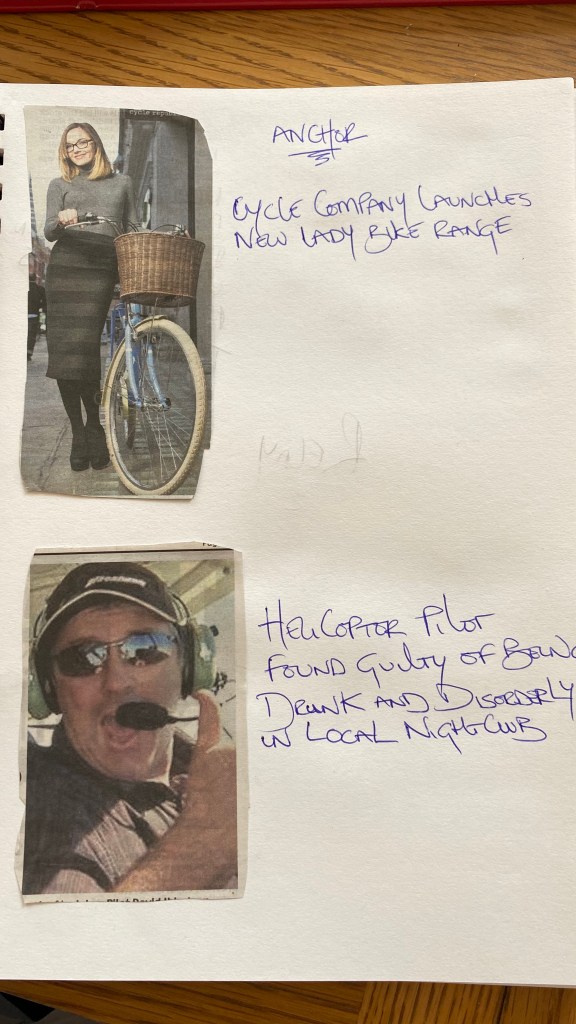 cycle repair
ANCHOR
CYCLE COMPANY LAUNCHES
NEW LADY BIKE RANGE
HELICOPTOR PILOT
FOUND GUILTY OF BEING
DRUNK AND DISORDERLY
IN LOCAL NIGHTCLUB
Pilot David